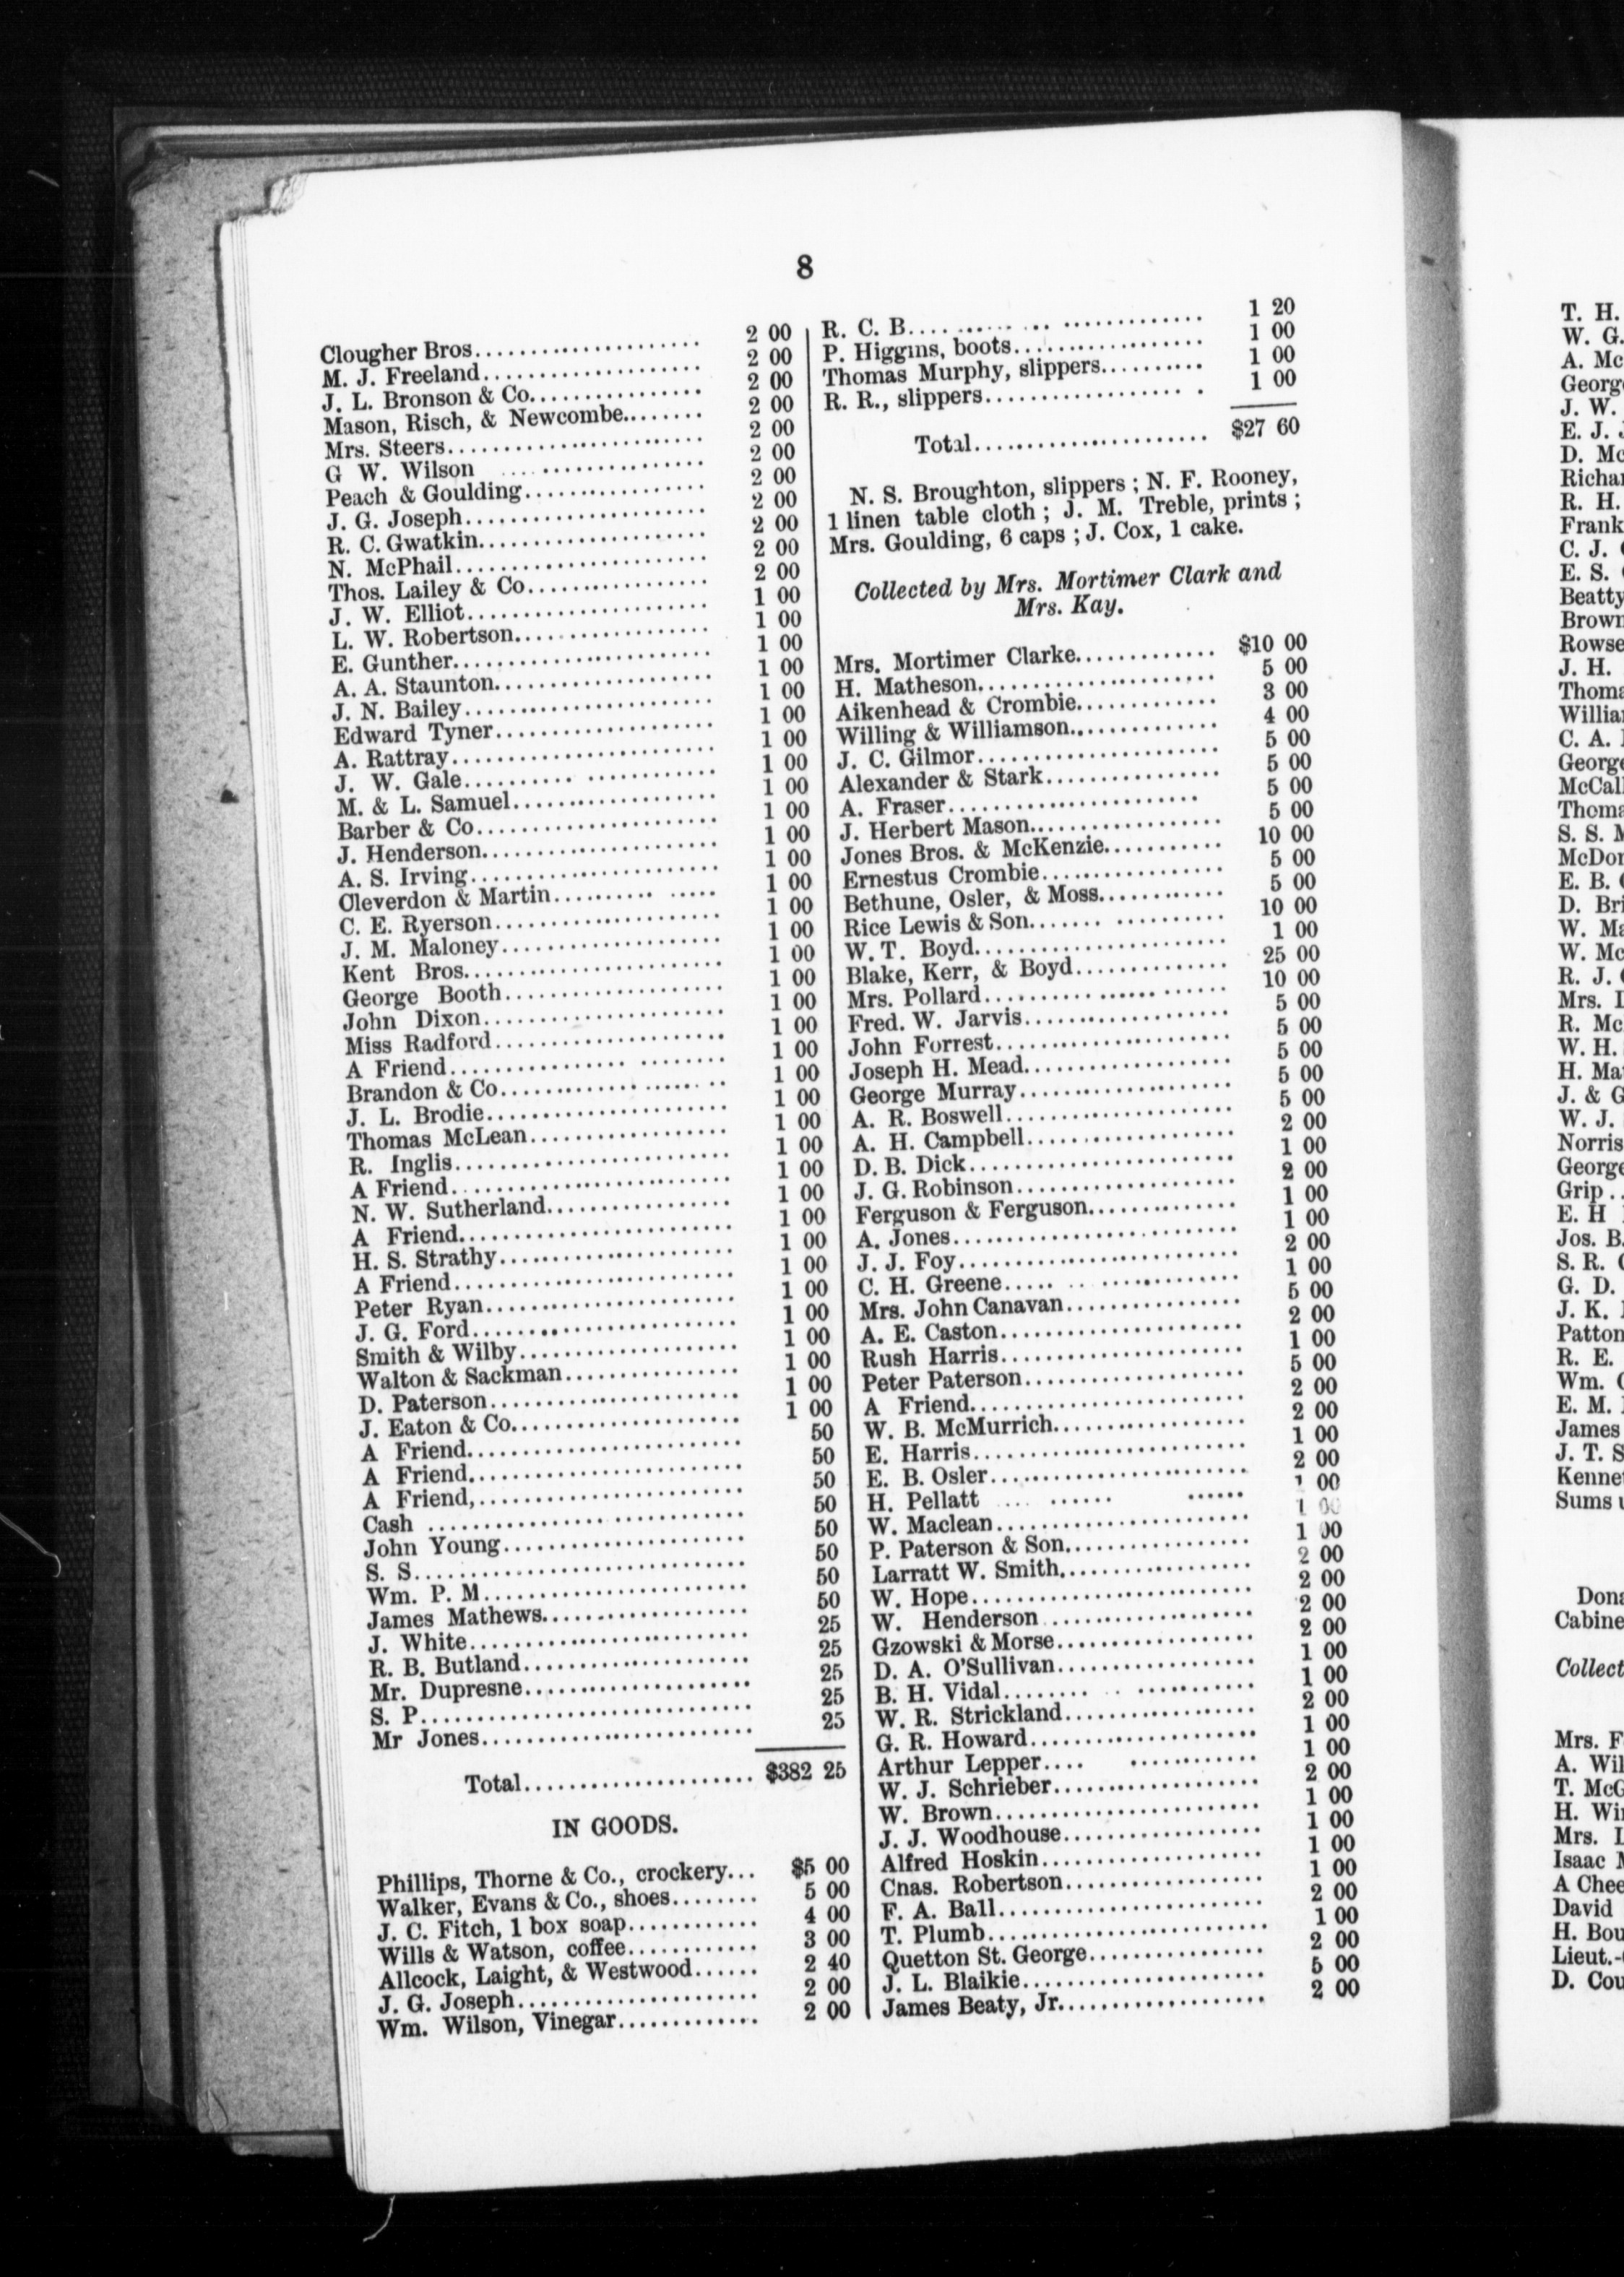 8
Clougher Bros..................... 2 00
M. J. Freeland..................... 2 00
J. L. Bronson & Co................ 2 00
Mason, Risch, & Newcombe........ 2 00
Mrs. Steers........................ 2 00
G W. Wilson .................... 2 00
Peach & Goulding................. 2 00
J. G. Joseph....................... 2 00
R. C. Gwatkin..................... 2 00
N. McPhail........................ 2 00
Thos. Lailey & Co................. 2 00
J. W. Elliot........................ 1 00
L. W. Robertson................... 1 00
E. Gunther......................... 1 00
A. A. Staunton..................... 1 00
J. N. Bailey........................ 1 00
Edward Tyner..................... 1 00
A. Rattray......................... 1 00
J. W. Gale........................ 1 00
M. & L. Samuel.................... 1 00
Barber & Co....................... 1 00
J. Henderson....................... 1 00
A. S. Irving........................ 1 00
Cleverdon & Martin............... 1 00
C. E. Ryerson...................... 1 00
J. M. Maloney...................... 1 00
Kent Bros......................... 1 00
George Booth..................... 1 00
John Dixon........................ 1 00
Miss Radford...................... 1 00
A Friend........................... 1 00
Brandon & Co...................... 1 00
J. L. Brodie........................ 1 00
Thomas McLean................... 1 00
R. Inglis.......................... 1 00
A Friend........................... 1 00
N. W. Sutherland.................. 1 00
A Friend.......................... 1 00
H. S. Strathy....................... 1 00
A Friend........................... 1 00
Peter Ryan........................ 1 00
J. G. Ford.......................... 1 00
Smith & Wilby...................... 1 00
Walton & Sackman................. 1 00
D. Paterson......................... 1 00
J. Eaton & Co...................... 1 00
A Friend.......................... 50
A Friend.......................... 50
A Friend,......................... 50
Cash .............................. 50
John Young....................... 50
S. S............................... 50
Wm. P. M......................... 50
James Mathews.................... 50
J. White........................... 25
R. B. Butland...................... 25
Mr. Dupresne...................... 25
S. P............................... 25
Mr Jones.......................... 25
Total...................... $382 25
IN GOODS.
Phillips, Thorne & Co., crockery... $5 00
Walker, Evans & Co., shoes........ 5 00
J. C. Fitch, 1 box soap............. 4 00
Wills & Watson, coffee............ 3 00
Allcock, Laight, & Westwood...... 2 40
J. G. Joseph....................... 2 00
Wm. Wilson, Vinegar............. 2 00
R. C. B........................... 1 20
P. Higgins, boots................... 1 00
Thomas Murphy, slippers.......... 1 00
R. R., slippers.................... 1 00
Total....................... $27 60
N. S. Broughton, slippers ; N. F. Rooney,
1 linen table cloth ; J. M. Treble, prints ;
Mrs. Goulding, 6 caps ; J. Cox, 1 cake.
Collected by Mrs. Mortimer Clark and
Mrs. Kay.
Mrs. Mortimer Clarke............. $10 00
H. Matheson....................... 5 00
Aikenhead & Crombie............. 3 00
Willing & Williamson.............. 4 00
J. C. Gilmor........................ 5 00
Alexander & Stark................. 5 00
A. Fraser.......................... 5 00
J. Herbert Mason.................. 5 00
Jones Bros. & McKenzie........... 10 00
Ernestus Crombie.................. 5 00
Bethune, Osler, & Moss............ 5 00
Rice Lewis & Son.................. 10 00
W. T. Boyd........................ 1 00
Blake, Kerr, & Boyd............... 25 00
Mrs. Pollard........................ 10 00
Fred. W. Jarvis.................... 5 00
John Forrest....................... 5 00
Joseph H. Mead.................... 5 00
George Murray..................... 5 00
A. R. Boswell...................... 5 00
A. H. Campbell.................... 2 00
D. B. Dick.......................... 1 00
J. G. Robinson..................... 2 00
Ferguson & Ferguson.............. 1 00
A. Jones........................... 1 00
J. J. Foy........................... 2 00
C. H. Greene...................... 1 00
Mrs. John Canavan................ 5 00
A. E. Caston....................... 2 00
Rush Harris....................... 1 00
Peter Paterson..................... 5 00
A Friend.......................... 2 00
W. B. McMurrich.................. 2 00
E. Harris.......................... 1 00
E. B. Osler......................... 2 00
H. Pellatt .... ...... ...... 1 00
W. Maclean........................ 1 00
P. Paterson & Son................. 1 00
Larratt W. Smith.................. 2 00
W. Hope........................... 2 00
W. Henderson .................... 2 00
Gzowski & Morse................... 2 00
D. A. O'Sullivan................... 1 00
B. H. Vidal........ .. ............ 1 00
W. R. Strickland................... 2 00
G. R. Howard...................... 1 00
Arthur Lepper.... ............ 1 00
W. J. Schrieber.................... 2 00
W. Brown......................... 1 00
J. J. Woodhouse................... 1 00
Alfred Hoskin..................... 1 00
Cnas. Robertson................... 1 00
F. A. Ball.......................... 2 00
T. Plumb........................... 1 00
Quetton St. George................ 2 00
J. L. Blaikie....................... 5 00
James Beaty, Jr.................... 2 00
T. H.
W. G.
A. Mc
George
J. W.
E. J.
D. Mc
Richar
R. H.
Frank
C. J.
E. S.
Beatty
Brown
Rowse
J. H.
Thoma
Willia
C. A.
George
McCal
Thoma
S. S.
McDon
E. B.
D. Bri
W. Ma
W. Mc
R. J.
Mrs.
R. Mc
W. H.
H. Ma
J. & G
W. J.
Norris
George
Grip
E. H
Jos. B.
S. R.
G. D.
J. K.
Patton
R. E.
Wm.
E. M.
James
J. T. S
Kenne
Sums
Dona
Cabine
Collect
Mrs. F
A. Wil
T. McG
H. Wi
Mrs.
Isaac
A Chee
David
H. Bou
Lieut.-
D. Cou